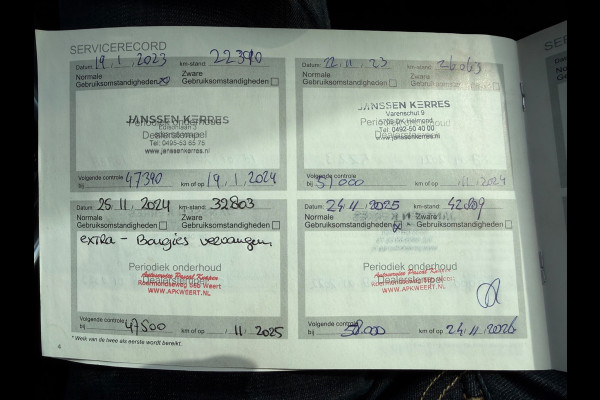 SERVICERECORD
Datum: 19.1.2023 km-stand: 22390
Normale Gebruiksomstandigheden Zware Gebruiksomstandigheden
JANSSEN KERRES
Periodiek onderhoud
Dealerstempel
Tel. 0495-53 65 75
www.janssenkerres.nl
Volgende controle bij 47390 km of op 19.1.2024
Datum: 22.11.23 km-stand: 26063
Normale Gebruiksomstandigheden Zware Gebruiksomstandigheden
JANSSEN KERRES
Varenschut 9
Periodiek onderhoud
5705 DK Helmond
Dealerstempel
Tel. 0492-50 40 00
www.janssenkerres.nl
Volgende controle bij 51000 km of op 11.2024
Datum: 25.11.2024 km-stand: 32803
Normale Gebruiksomstandigheden Zware Gebruiksomstandigheden
extra - Bougies vervangen
Periodiek onderhoud
Dealerstempel
Roermondseweg 56b Weert
WWW.APKWEERT.NL
Volgende controle bij 47500 km of op 11.2025
Datum: 24.11.2025 km-stand:
Normale Gebruiksomstandigheden Zware Gebruiksomstandigheden
Periodiek onderhoud
Dealerstempel
WWW.APKWEERT.NL
Volgende controle bij 58.000 km of op 24.11.2026
* Welk van de twee als eerste wordt bereikt.